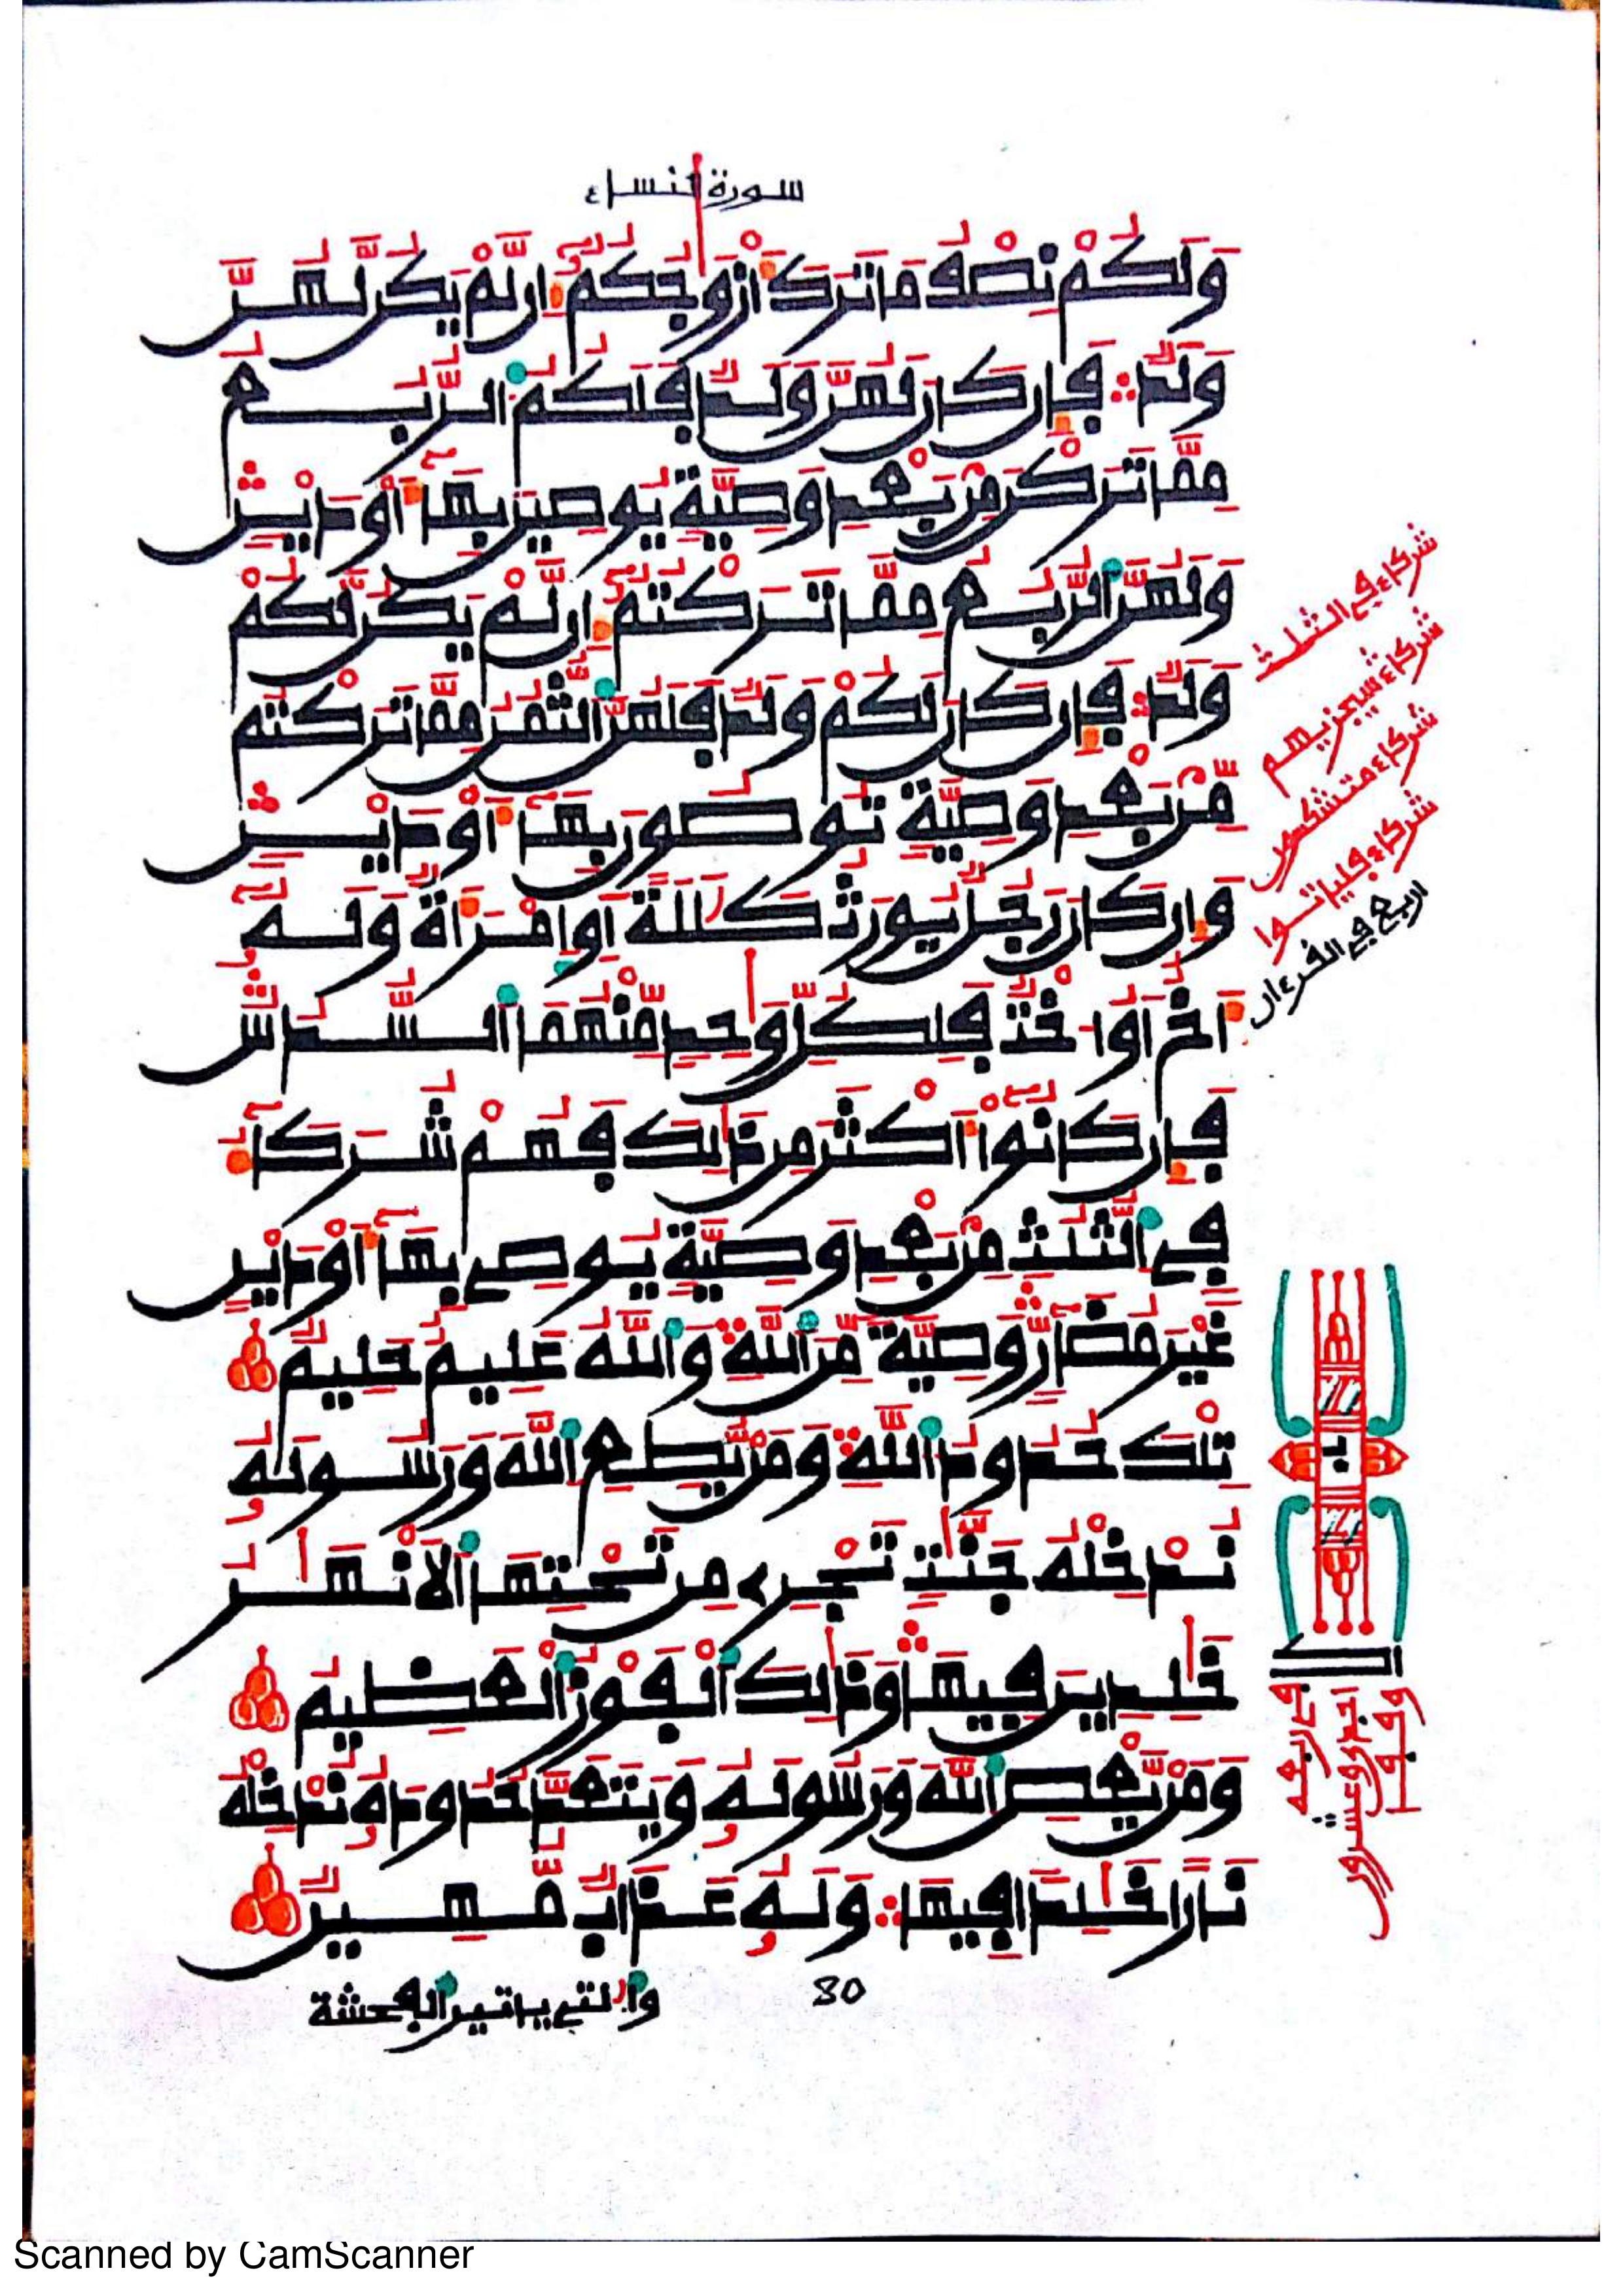 سورة النساء
وَلَكُمْ نِصْفُ مَا تَرَكَ أَزْوَٰجُكُمُۥٓ إِن لَّمْ يَكُن لَّهُنَّ
وَلَدٌ فَإِن كَانَ لَهُنَّ وَلَدٌ فَلَكُمُ الرُّبُعُ
مِمَّا تَرَكْنَ مِنۢ بَعْدِ وَصِيَّةٍ يُوصِينَ بِهَآ أَوْ دَيْنٍ
وَلَهُنَّ الرُّبُعُ مِمَّا تَرَكْتُمُۥٓ إِن لَّمْ يَكُن لَّكُمْ
وَلَدٌ فَإِن كَانَ لَكُمْ وَلَدٌ فَلَهُنَّ الثُّمُنُ مِمَّا تَرَكْتُم
مِّنۢ بَعْدِ وَصِيَّةٍ تُوصُونَ بِهَآ أَوْ دَيْنٍ
وَإِن كَانَ رَجُلٌ يُورَثُ كَلَٰلَةً أَوِ امْرَأَةٌ وَلَهُۥٓ
أَخٌ أَوُ اخْتٌ فَلِكُلِّ وَٰحِدٍ مِّنْهُمَا السُّدُسُ
فَإِن كَانُوٓاْ أَكْثَرَ مِن ذَٰلِكَ فَهُمْ شُرَكَآءُ
فِي الثُّلُثِ مِنۢ بَعْدِ وَصِيَّةٍ يُوصِي بِهَآ أَوْ دَيْنٍ
غَيْرَ مُضَآرٍّ وَصِيَّةً مِّنَ اللَّهِ وَاللَّهُ عَلِيمٌ حَلِيمٌ
تِلْكَ حُدُودُ اللَّهِ وَمَنْ يُّطِعِ اللَّهَ وَرَسُولَهُۥ
نُدْخِلْهُ جَنَّٰتٍ تَجْرِي مِن تَحْتِهَا الَانْهَٰرُ
خَٰلِدِينَ فِيهَا وَذَٰلِكَ الْفَوْزُ الْعَظِيمُ
وَمَنْ يَّعْصِ اللَّهَ وَرَسُولَهُۥ وَيَتَعَدَّ حُدُودَهُۥ نُدْخِلْهُ
نَارًا خَٰلِدًا فِيهَا وَلَهُۥ عَذَابٌ مُّهِينٌ
80
وَالَٰتِي يَاتِينَ الْفَٰحِشَةَ
شركاء في الثلث
شركاء سيجزيهم
شركاء متشكسون
شركاء فلياتوا
اربع في القرءان